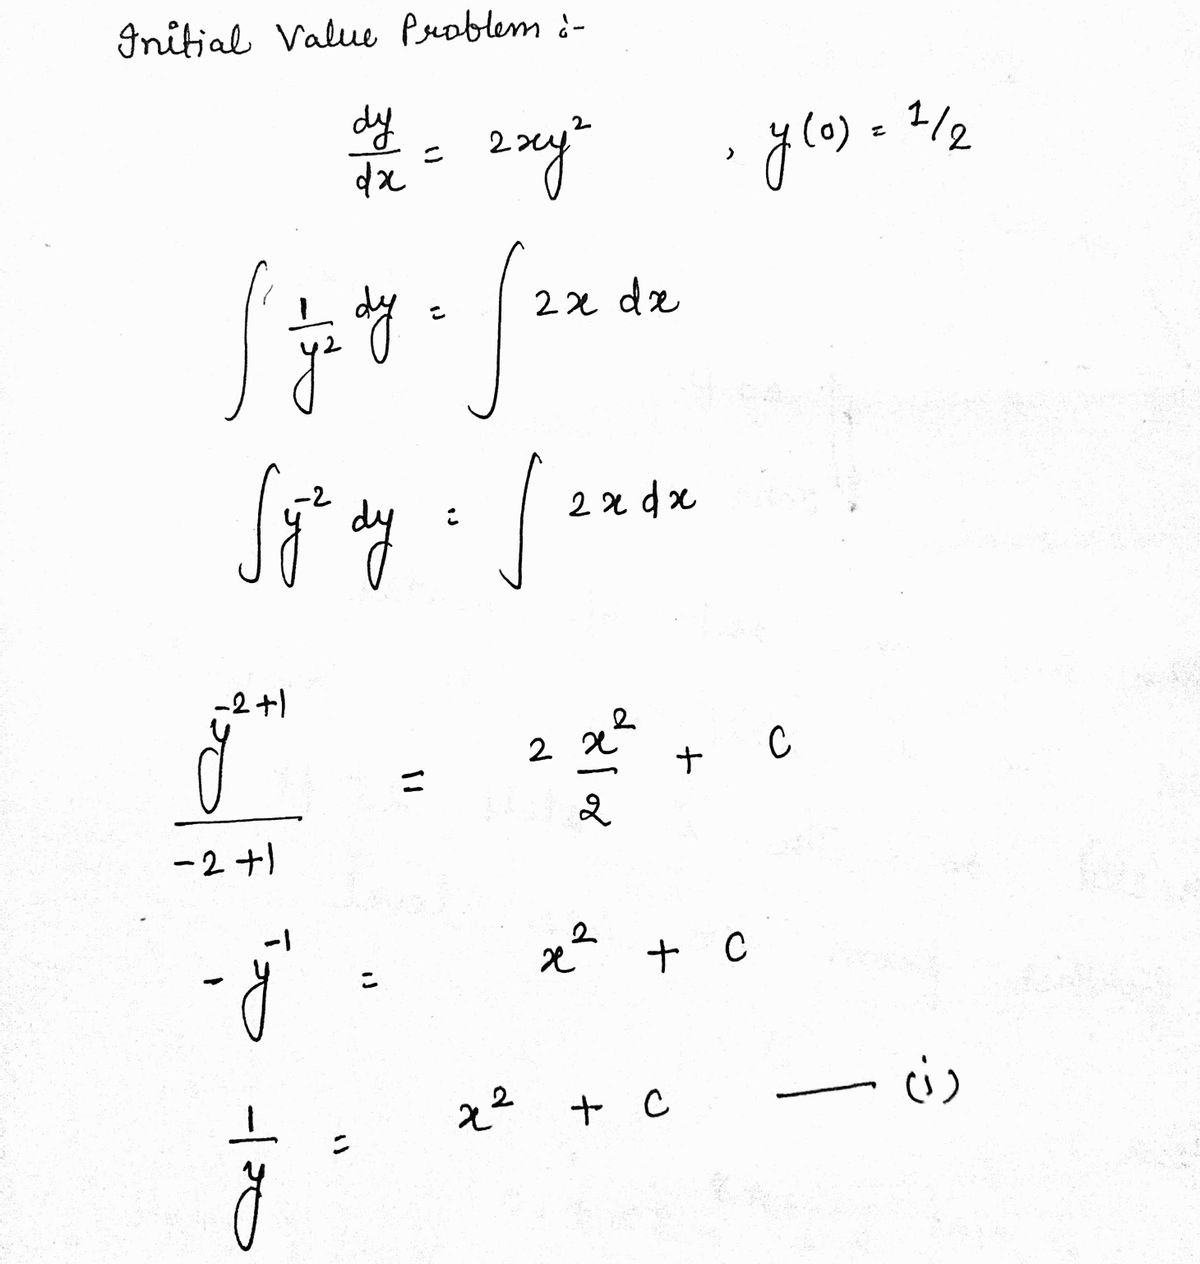 Initial Value Problem :-
dy/dx = 2xy² , y(0) = 1/2
∫ 1/y² dy = ∫ 2x dx
∫ y⁻² dy = ∫ 2x dx
y⁻²⁺¹/-2+1 = 2 x²/2 + C
- y⁻¹ = x² + C
1/y = x² + C — (i)